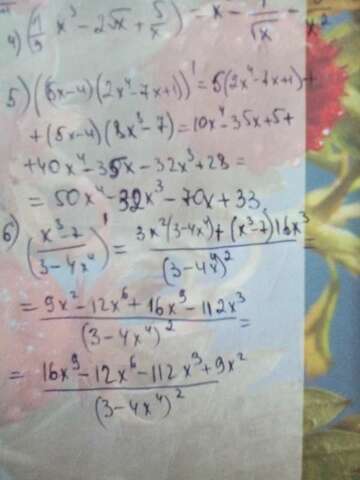 4) (1/3 x³ - 2√x + 5/x)' = x - 1/√x - 5/x²
5) ((5x-4)(2x⁴-7x+1))' = 5(2x⁴-7x+1)+
+(5x-4)(8x³-7) = 10x⁴-35x+5+
+40x⁴-35x-32x³+28 =
= 50x⁴-32x³-70x+33.
6) (x³-7 / 3-4x⁴)' = 3x²(3-4x⁴)+(x³-7)16x³ / (3-4x⁴)² =
= 9x²-12x⁶+16x⁹-112x³ / (3-4x⁴)² =
= 16x⁹-12x⁶-112x³+9x² / (3-4x⁴)²